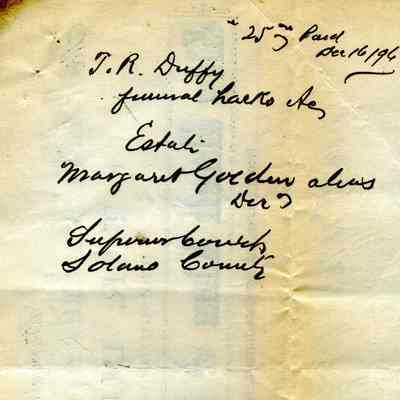 25 00 Paid
Dec 16/96
T. R. Duffy
funeral hacks &c
Estate
Margaret Golden alias
Dec'd
Superior Court
Solano County